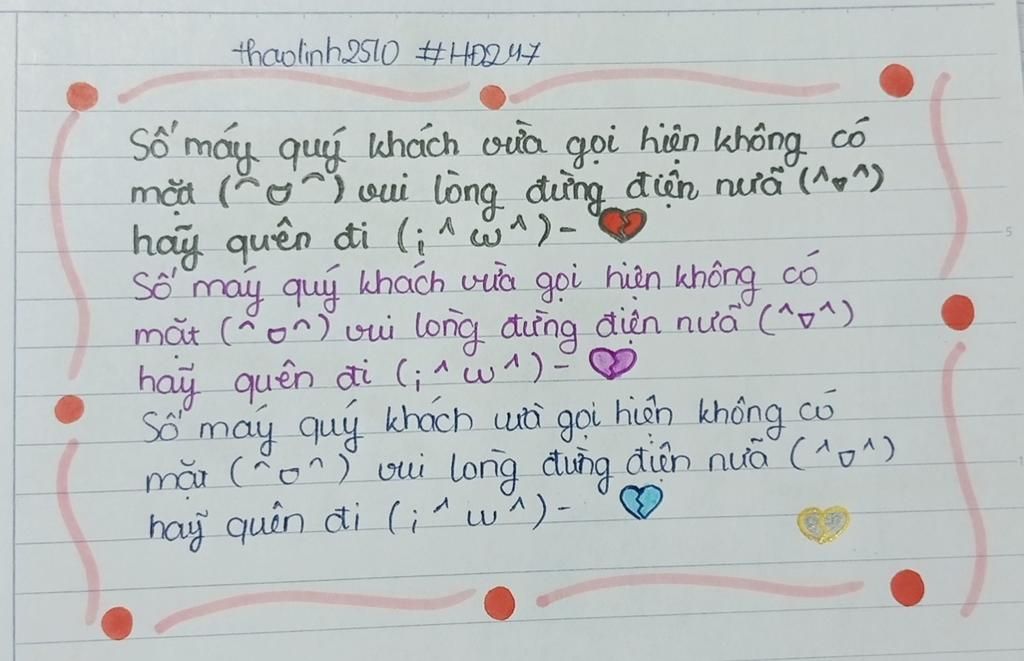 thaolinh2510 #HD247
Số máy quý khách vừa gọi hiện không có
mặt (^▽^) vui lòng đừng điện nữa (^▽^)
hãy quên đi (¡^ω^)- 💔
Số máy quý khách vừa gọi hiện không có
mặt (^▽^) vui lòng đừng điện nữa (^▽^)
hãy quên đi (¡^ω^)- 💔
Số máy quý khách vừa gọi hiện không có
mặt (^▽^) vui lòng đừng điện nữa (^▽^)
hãy quên đi (¡^ω^)-